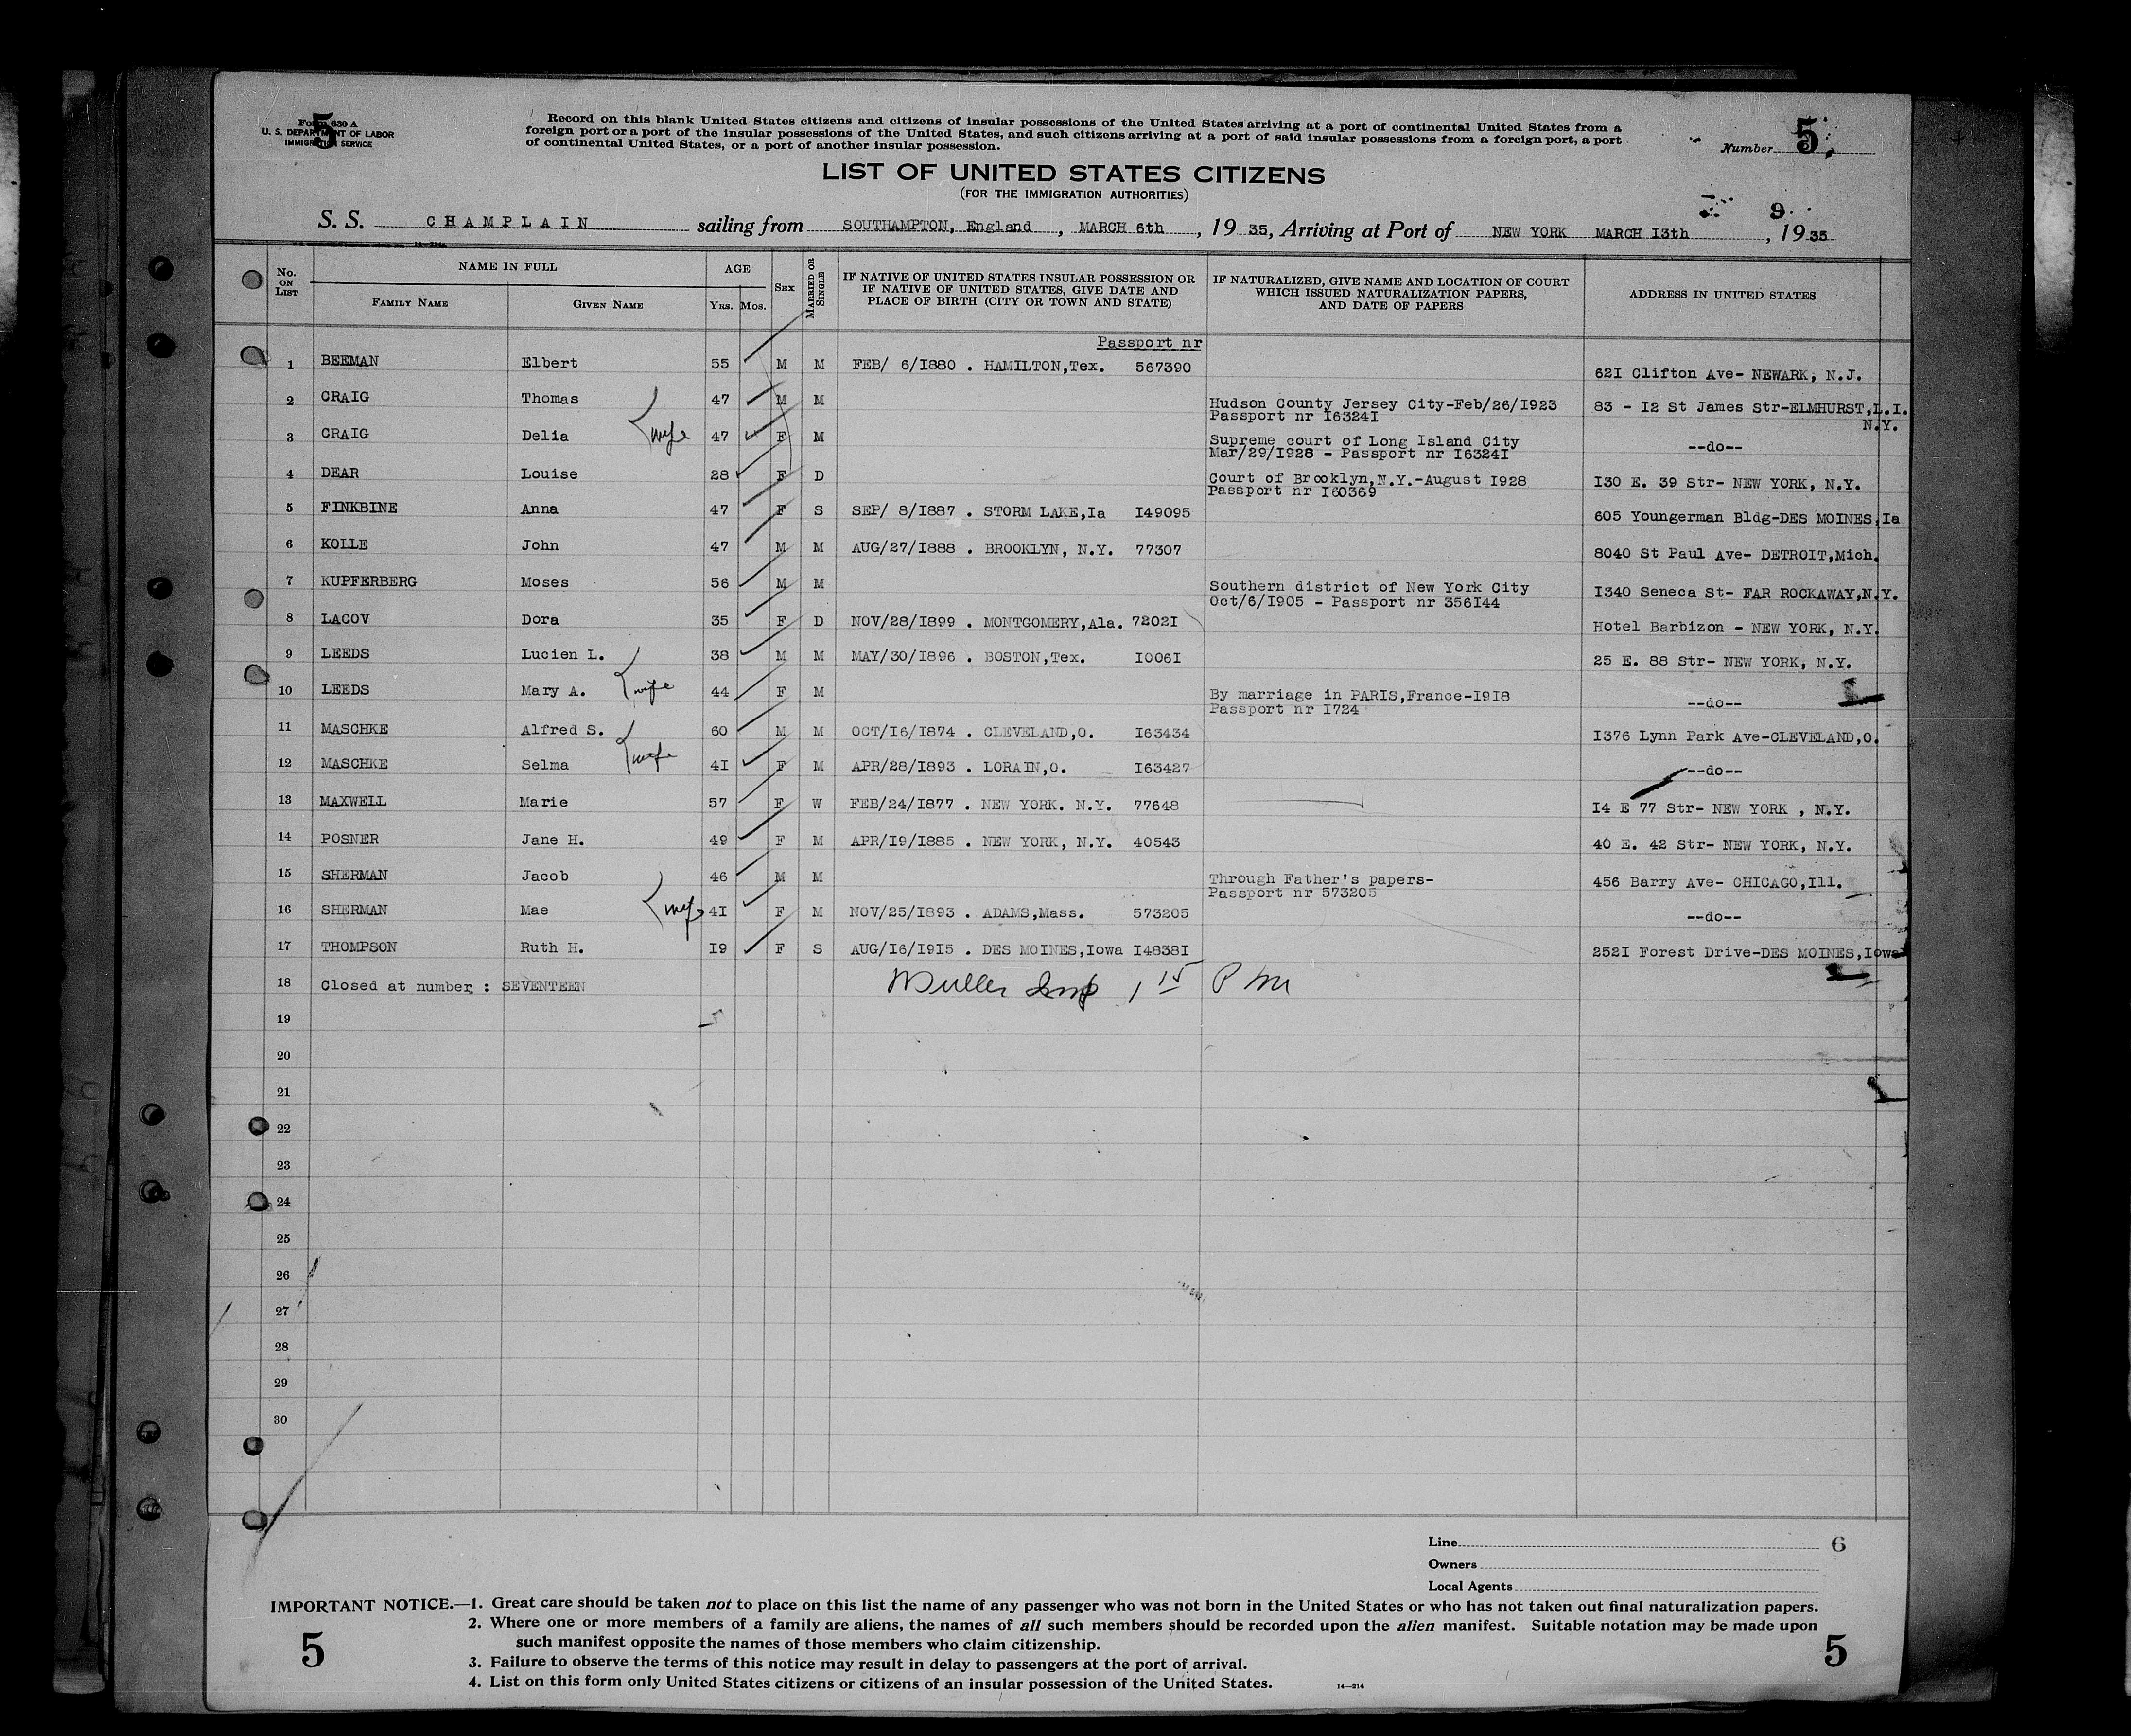 5
Form 630 A
U. S. DEPARTMENT OF LABOR
IMMIGRATION SERVICE
Record on this blank United States citizens and citizens of insular possessions of the United States arriving at a port of continental United States from a
foreign port or a port of the insular possessions of the United States, and such citizens arriving at a port of said insular possessions from a foreign port, a port
of continental United States, or a port of another insular possession.
Number 5
LIST OF UNITED STATES CITIZENS
(FOR THE IMMIGRATION AUTHORITIES)
9
S. S. CHAMPLAIN sailing from SOUTHAMPTON, England, MARCH 6th, 19 35, Arriving at Port of NEW YORK MARCH I3th, 19 35
14-214
No. ON LIST NAME IN FULL AGE SEX MARRIED OR SINGLE IF NATIVE OF UNITED STATES INSULAR POSSESSION OR IF NATIVE OF UNITED STATES, GIVE DATE AND PLACE OF BIRTH (CITY OR TOWN AND STATE) IF NATURALIZED, GIVE NAME AND LOCATION OF COURT WHICH ISSUED NATURALIZATION PAPERS, AND DATE OF PAPERS ADDRESS IN UNITED STATES
FAMILY NAME GIVEN NAME YRS. MOS.
Passport nr
1 BEEMAN Elbert 55 M M FEB/ 6/I880 . HAMILTON,Tex. 567390 62I Clifton Ave- NEWARK, N.J.
2 CRAIG Thomas 47 M M Hudson County Jersey City-Feb/26/I923 83 - I2 St James Str-ELMHURST,L.I.
Passport nr I6324I N.Y.
3 CRAIG Delia wife 47 F M Supreme court of Long Island City --do--
Mar/29/I928 - Passport nr I6324I
4 DEAR Louise 28 F D Court of Brooklyn,N.Y.-August I928 I30 E. 39 Str- NEW YORK, N.Y.
Passport nr I60369
5 FINKBINE Anna 47 F S SEP/ 8/I887 . STORM LAKE,Ia I49095 605 Youngerman Bldg-DES MOINES,Ia
6 KOLLE John 47 M M AUG/27/I888 . BROOKLYN, N.Y. 77307 8040 St Paul Ave- DETROIT,Mich.
7 KUPFERBERG Moses 56 M M Southern district of New York City I340 Seneca St- FAR ROCKAWAY,N.Y.
Oct/6/I905 - Passport nr 356I44
8 LACOV Dora 35 F D NOV/28/I899 . MONTGOMERY,Ala. 7202I Hotel Barbizon - NEW YORK, N.Y.
9 LEEDS Lucien L. 38 M M MAY/30/I896 . BOSTON,Tex. I006I 25 E. 88 Str- NEW YORK, N.Y.
10 LEEDS Mary A. wife 44 F M By marriage in PARIS,France-I9I8 --do--
Passport nr I724
11 MASCHKE Alfred S. 60 M M OCT/I6/I874 . CLEVELAND,O. I63434 I376 Lynn Park Ave-CLEVELAND,O.
12 MASCHKE Selma wife 4I F M APR/28/I893 . LORAIN,O. I63427 --do--
13 MAXWELL Marie 57 F W FEB/24/I877 . NEW YORK. N.Y. 77648 I4 E 77 Str- NEW YORK , N.Y.
14 POSNER Jane H. 49 F M APR/I9/I885 . NEW YORK, N.Y. 40543 40 E. 42 Str- NEW YORK, N.Y.
15 SHERMAN Jacob 46 M M Through Father's papers- 456 Barry Ave- CHICAGO,Ill.
Passport nr 573205
16 SHERMAN Mae wife 4I F M NOV/25/I893 . ADAMS,Mass. 573205 --do--
17 THOMPSON Ruth H. I9 F S AUG/I6/I9I5 . DES MOINES,Iowa I4838I 252I Forest Drive-DES MOINES,Iowa
18 Closed at number : SEVENTEEN Muller Insp 1 15 P M
19
20
21
22
23
24
25
26
27
28
29
30
Line 6
Owners
Local Agents
IMPORTANT NOTICE.—1. Great care should be taken not to place on this list the name of any passenger who was not born in the United States or who has not taken out final naturalization papers.
2. Where one or more members of a family are aliens, the names of all such members should be recorded upon the alien manifest. Suitable notation may be made upon
such manifest opposite the names of those members who claim citizenship.
3. Failure to observe the terms of this notice may result in delay to passengers at the port of arrival.
4. List on this form only United States citizens or citizens of an insular possession of the United States.
14—214
5
5